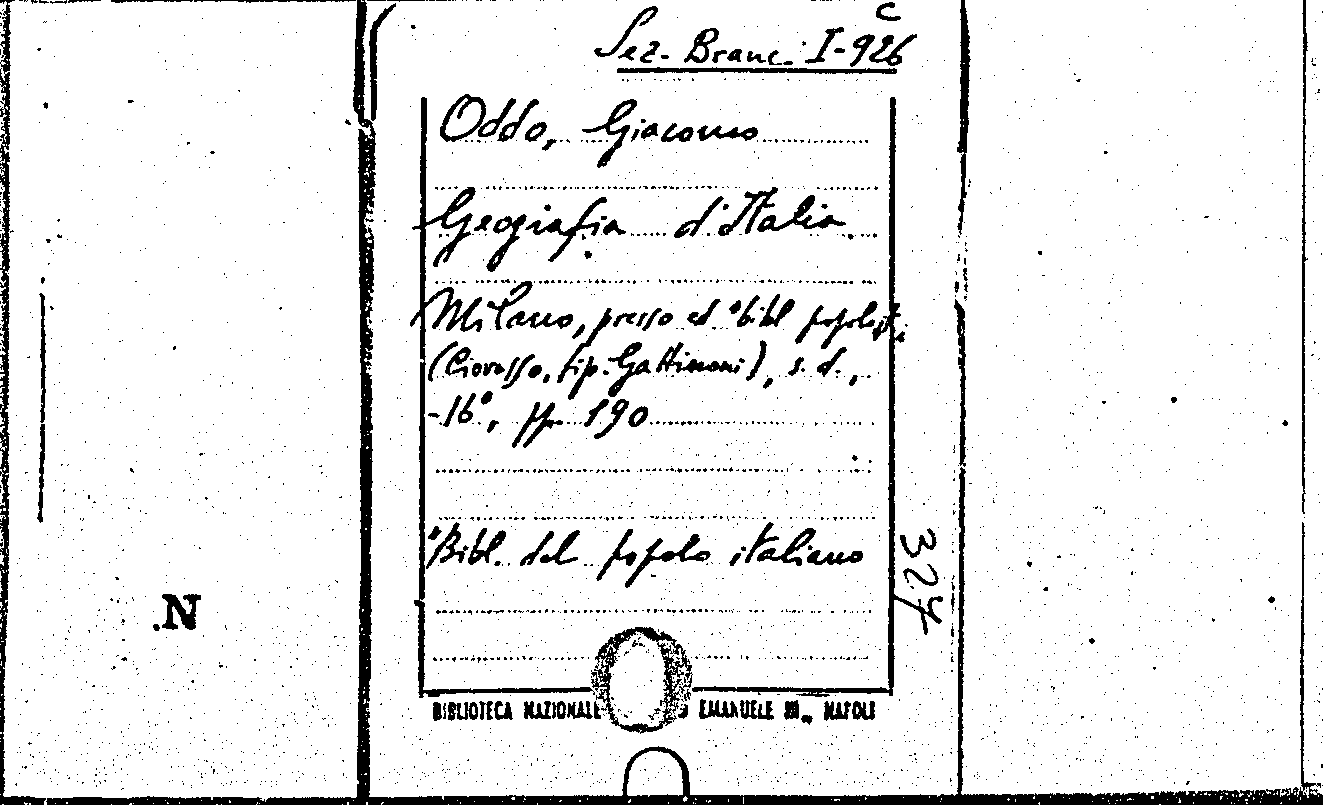 C
Sez. Branc. I-926
Oddo, Giacomo
Geografia d'Italia.
Milano, presso ed "bibl
(Ciovasso, tip. Gattinoni), s.d.,
-16°, pp. 190
"Bibl. del popolo italiano
327
.N
BIBLIOTECA NAZIONALE EMANUELE III„ NAPOLI